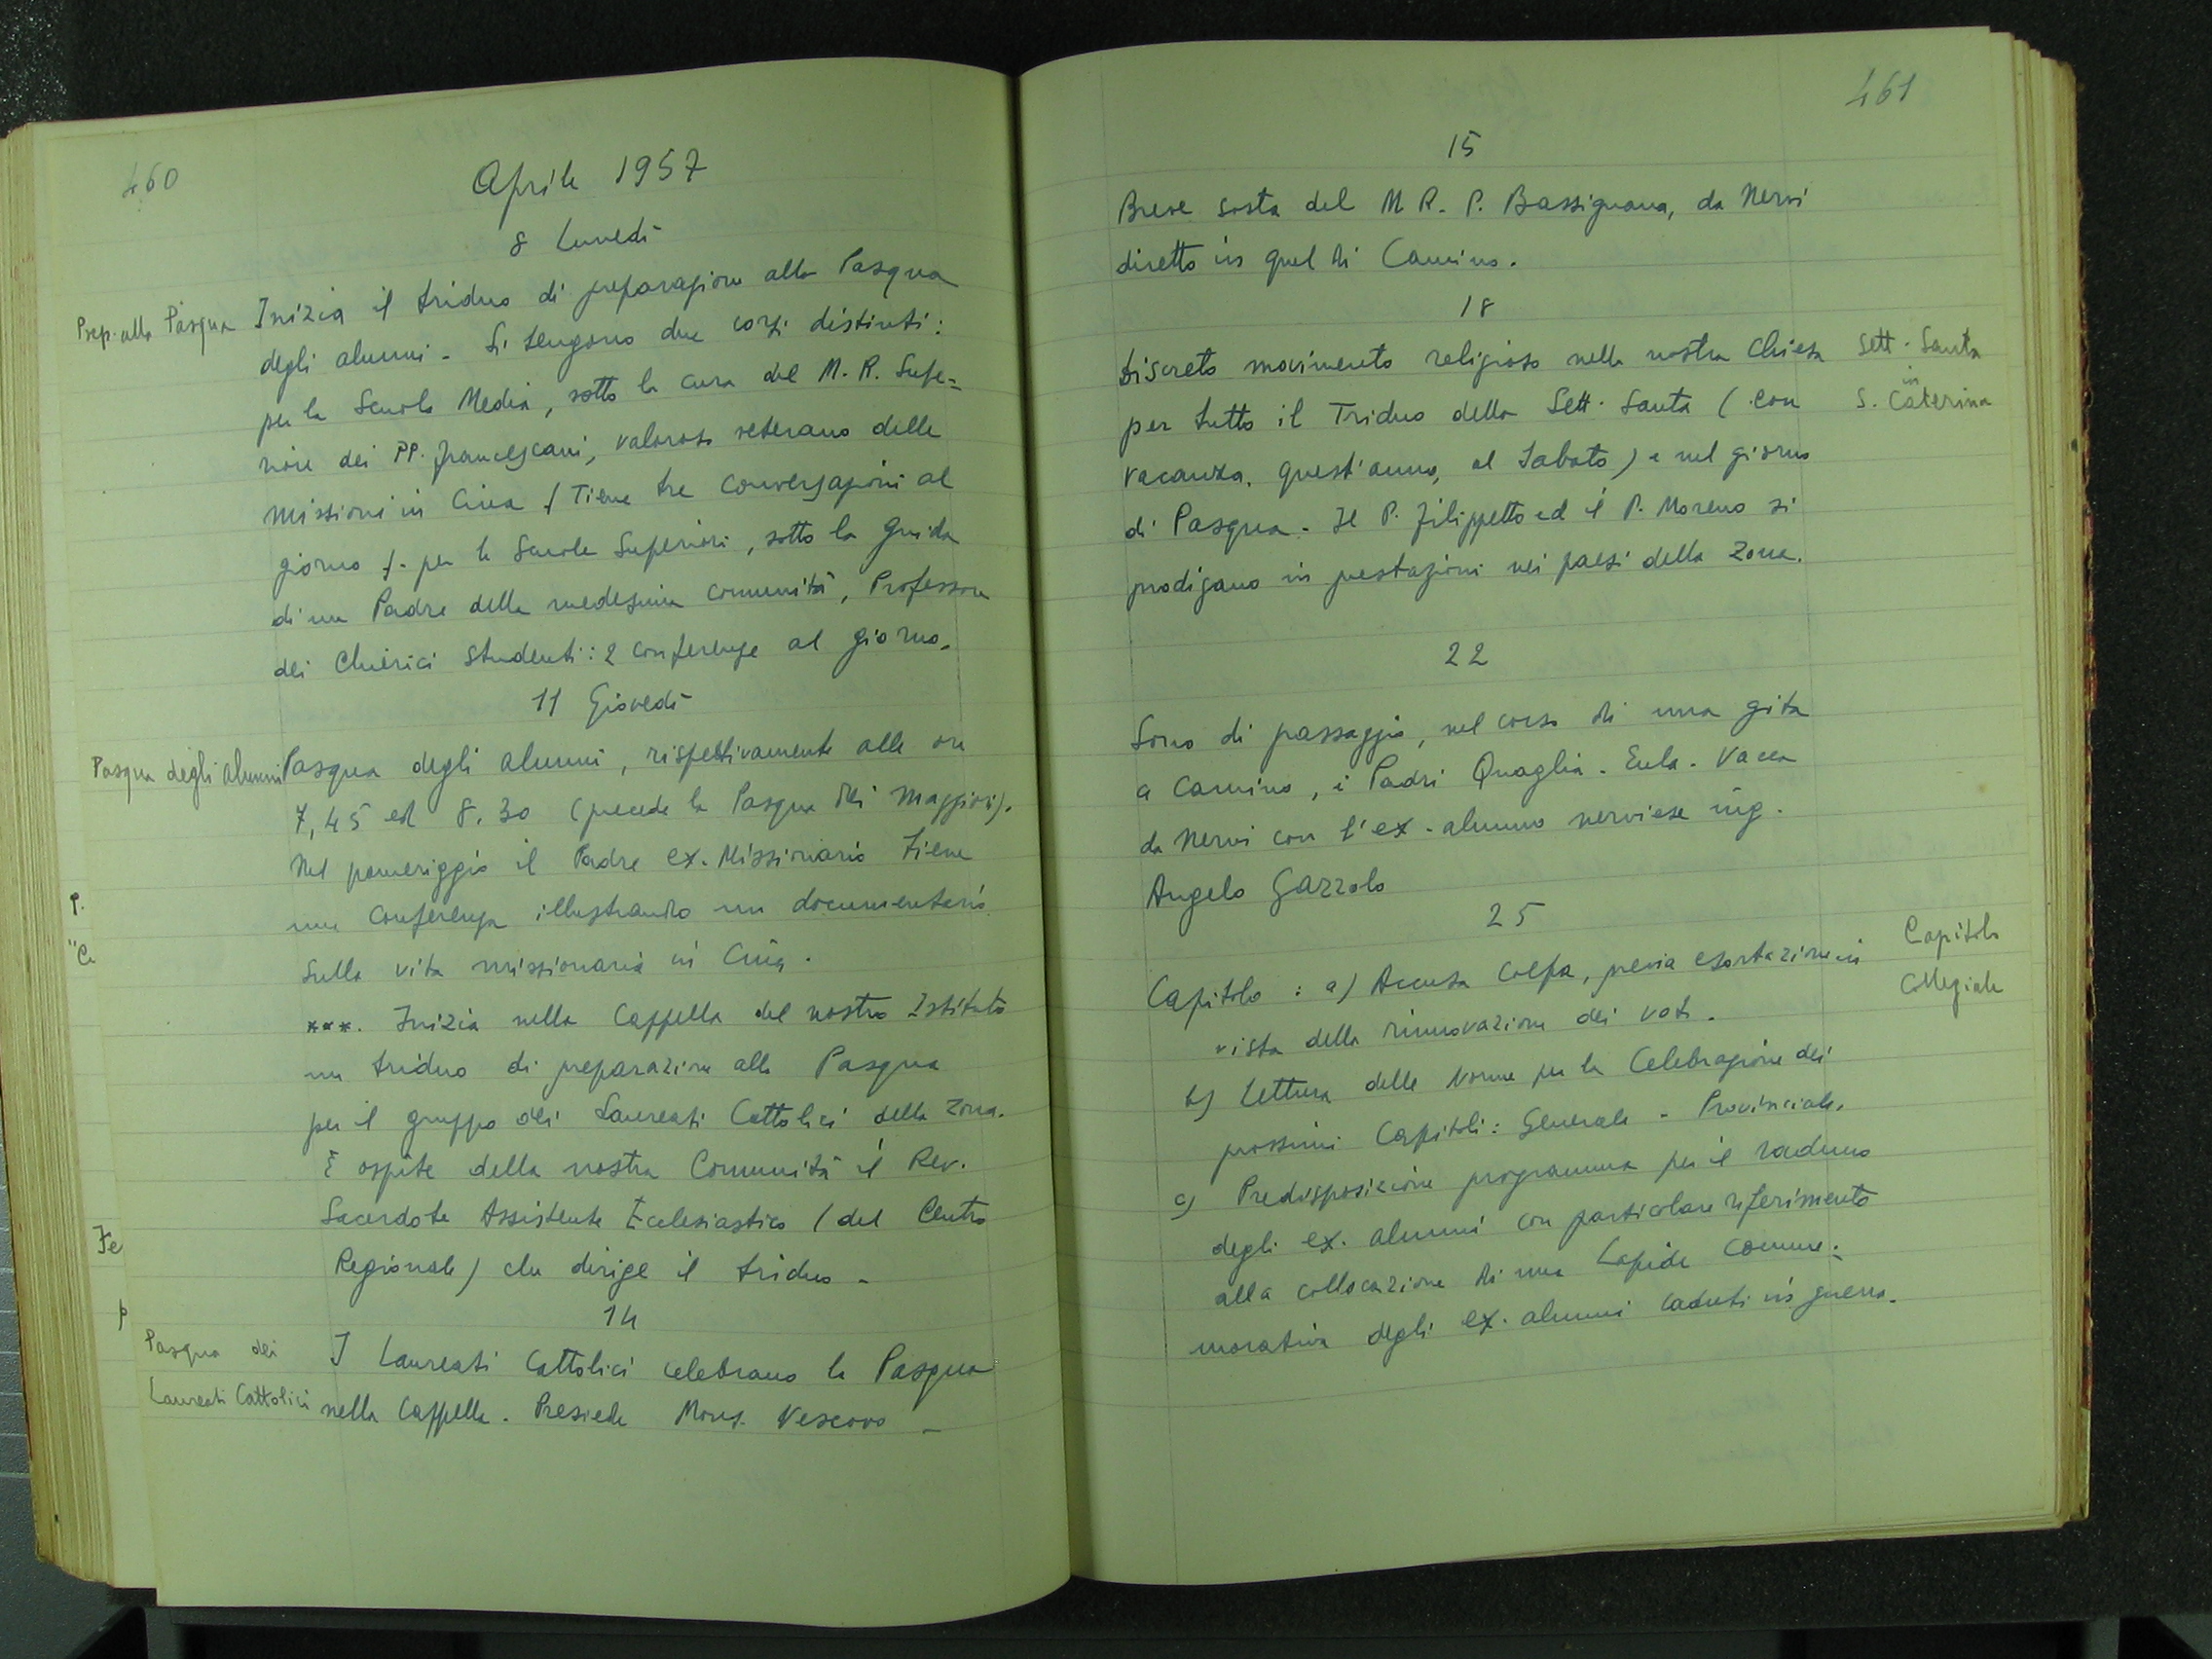 460
Aprile 1957
8 Lunedì
Prep. alla Pasqua
Inizia il triduo di preparazione alla Pasqua
degli alunni - Si tengono due corsi distinti:
per la Scuola Media, sotto la cura del M. R. Supe=
riore dei PP. francescani, valoroso veterano delle
missioni in Cina (Tiene tre conversazioni al
giorno). per le Scuole Superiori, sotto la guida
di un Padre della medesima comunità, Professore
dei Chierici studenti: 2 conferenze al giorno.
11 Giovedì
Pasqua degli Alunni
Pasqua degli alunni, rispettivamente alle ore
7,45 ed 8.30 (precede la Pasqua dei Maggiori).
Nel pomeriggio il Padre ex. Missionario tiene
una conferenza illustrando un documentario
sulla vita missionaria in Cina.
***. Inizia nella Cappella del nostro Istituto
un triduo di preparazione alla Pasqua
per il gruppo dei Laureati Cattolici della Zona.
È ospite della nostra Comunità il Rev.
Sacerdote Assistente Ecclesiastico (del Centro
Regionale) che dirige il triduo -
14
Pasqua dei
Laureati Cattolici
I Laureati Cattolici celebrano la Pasqua
nella Cappella. Presiede Mons. Vescovo -
P.
"C
Fe
p
461
15
Breve sosta del M R. P. Bassignana, da Nervi
diretto in quel di Camino.
18
Sett. Santa
in
S. Caterina
Discreto movimento religioso nella nostra Chiesa
per tutto il Triduo della Sett. Santa (con
vacanza, quest'anno, al Sabato) e nel giorno
di Pasqua - Il P. Filippetto ed il P. Moreno si
prodigano in prestazioni nei paesi della Zona.
22
Sono di passaggio, nel corso di una gita
a Camino, i Padri Quaglia - Eula - Vacca
da Nervi con l'ex-alunno nerviese ing.
Angelo Gazzolo
25
Capitolo
Collegiale
Capitolo: a) Accusa Colpa, previa esortazione in
vista della rinnovazione dei voti.
b) Lettura delle Norme per la Celebrazione dei
prossimi Capitoli: Generale - Provinciale.
c) Predisposizione programma per il raduno
degli ex. alunni con particolare riferimento
alla collocazione di una Lapide comme-
morativa degli ex. alunni caduti in guerra.